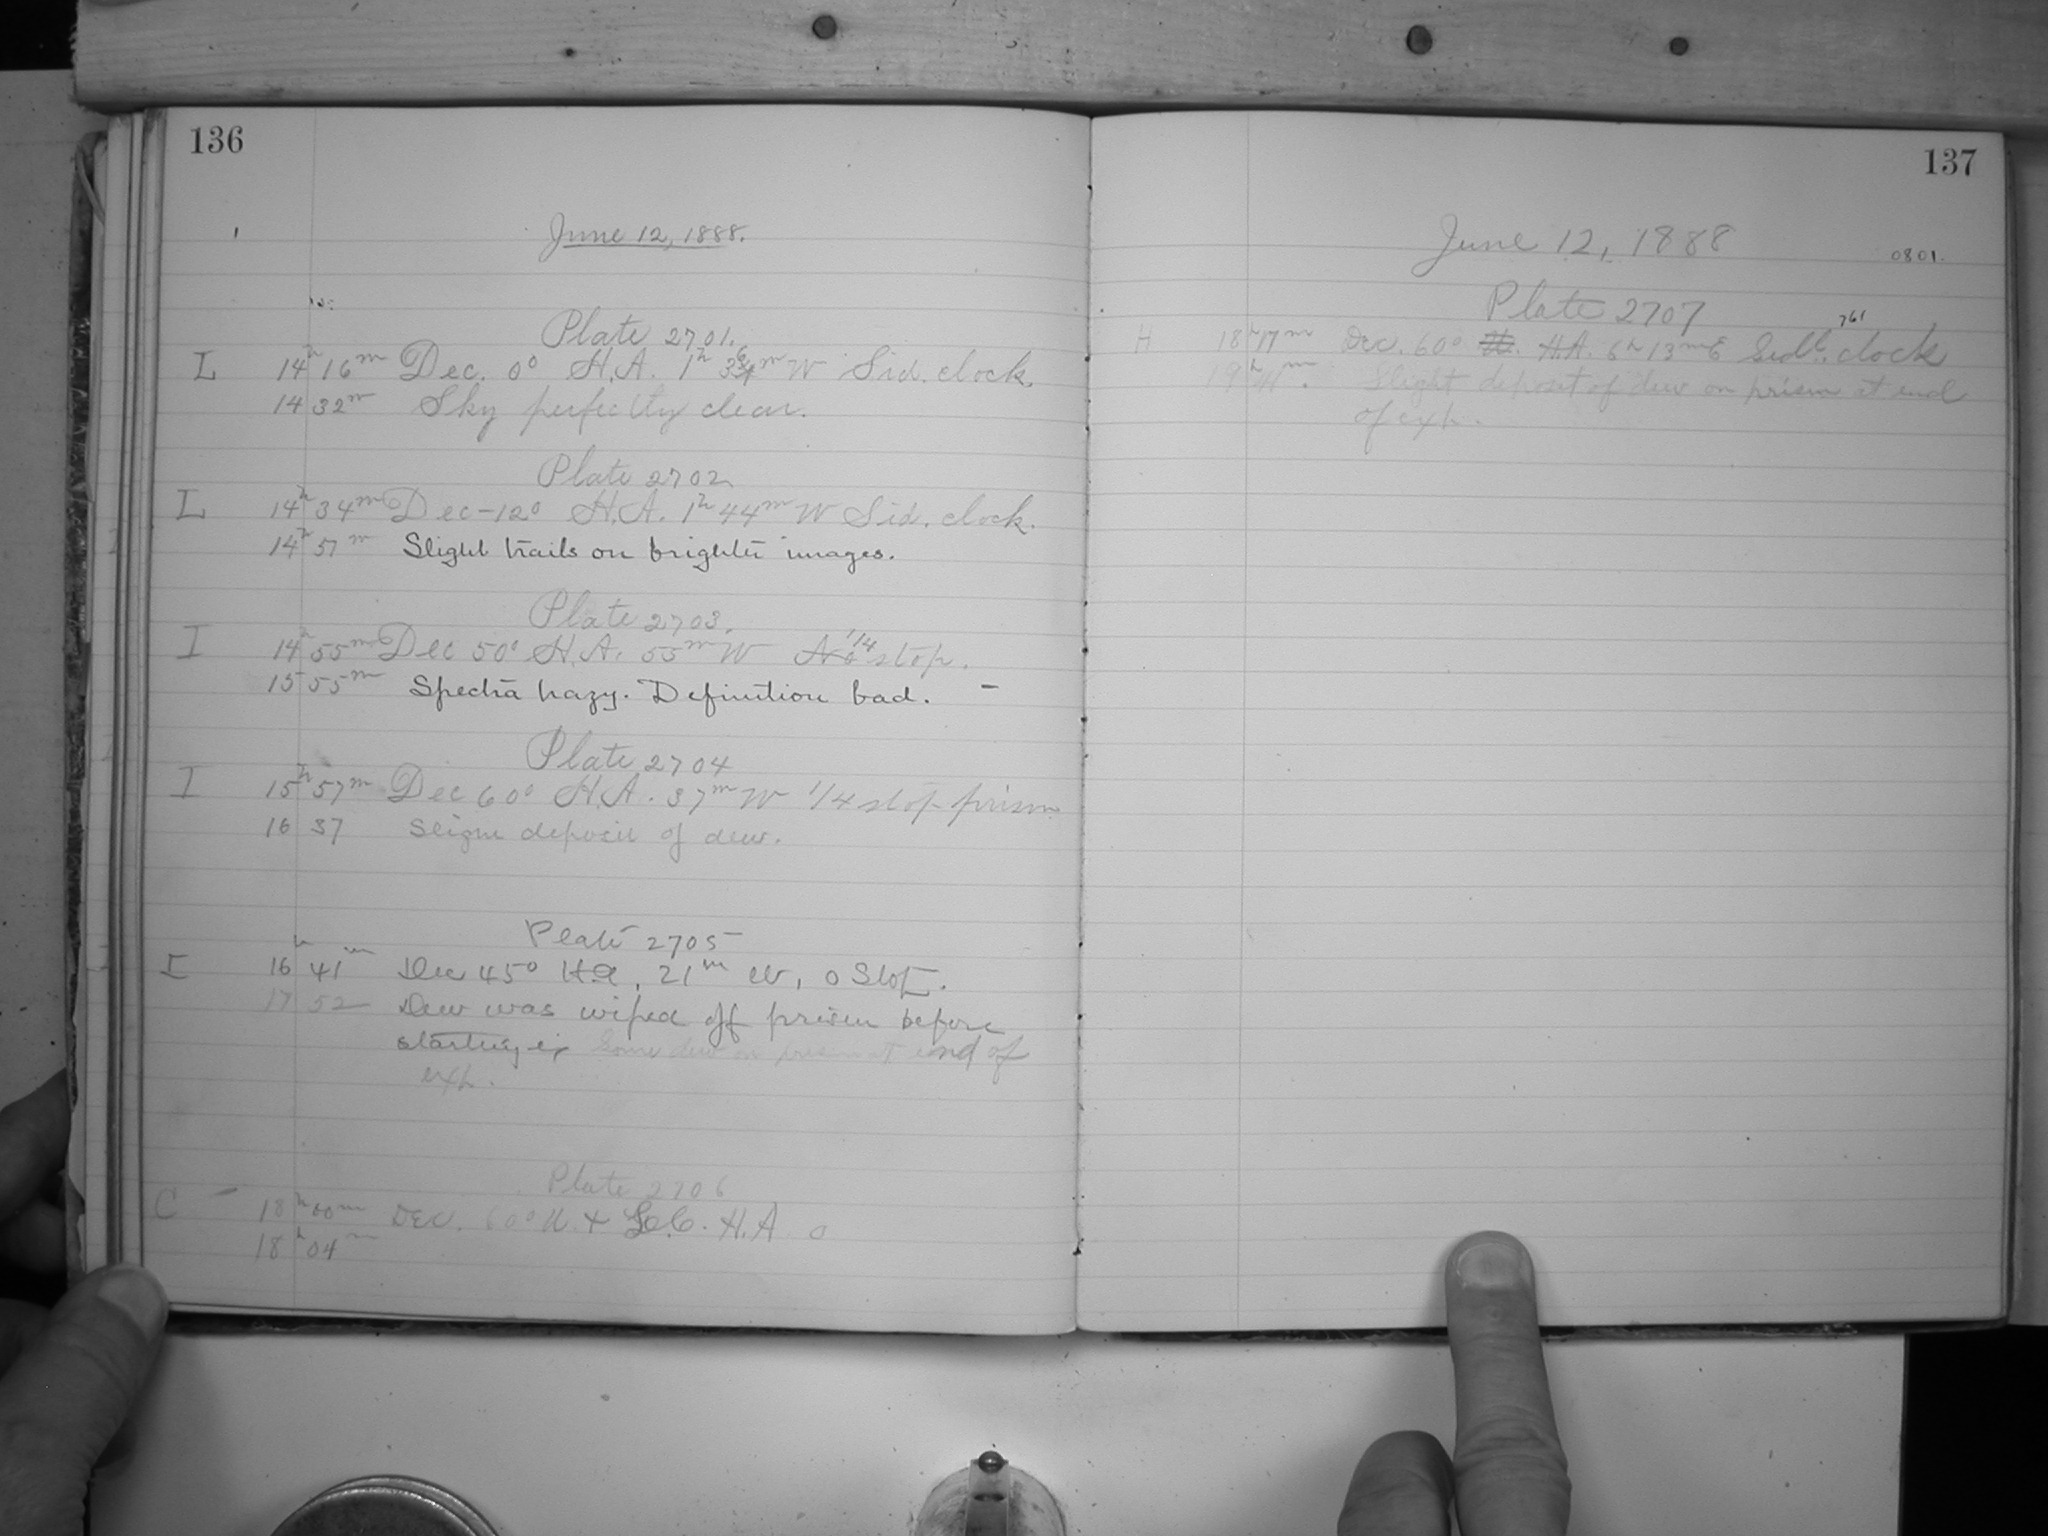 136
June 12, 1888.
Plate 2701.
L 14h 16m Dec. 0° H.A. 1h 36m W Sid. clock.
14 32m Sky perfectly clear.
Plate 2702
L 14h 34m Dec -12° H.A. 1h 44m W Sid. clock.
14h 57m Slight trails on brighter images.
Plate 2703.
I 14h 55m Dec 50° H.A. 55m W No 1/4 stop.
15 55m Spectra hazy. Definition bad. -
Plate 2704
I 15h 57m Dec 60° H.A. 37m W 1/4 stop prism
16 37 Slight deposit of dew.
Plate 2705
I 16h 41m Dec 45° H.A, 21m W, 0 Stop.
17 52 Dew was wiped off prism before
starting ex Some dew on prism at end of
exp.
Plate 2706
C - 18h 00m Dec. 60° U. + L.C. H.A 0
18h 04m
137
June 12, 1888
0801.
Plate 2707
761
H 18h 17m Dec. 60° H.A. 6h 13m E Sid. clock
19h 11m. Slight deposit of dew on prism at end
of exp.